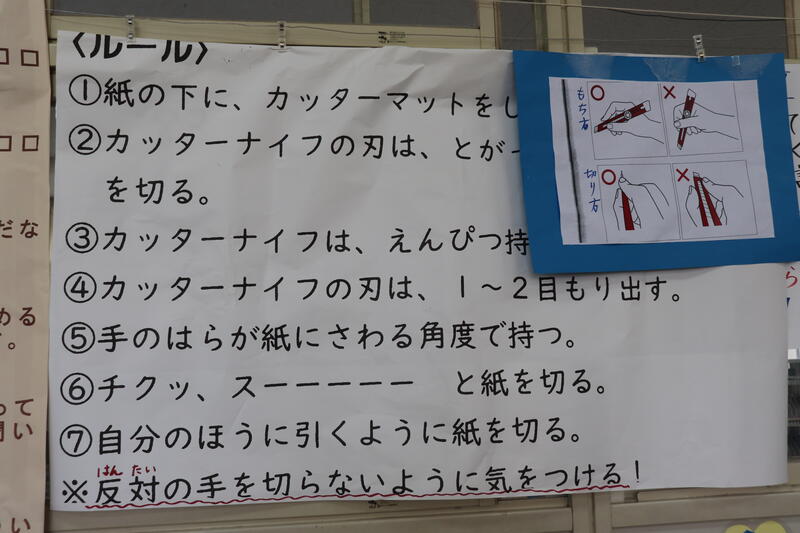 〈ルール〉
①紙の下に、カッターマットをし
②カッターナイフの刃は、とが
を切る。
③カッターナイフは、えんぴつ持
④カッターナイフの刃は、1～2目もり出す。
⑤手のはらが紙にさわる角度で持つ。
⑥チクッ、スーーーーー　と紙を切る。
⑦自分のほうに引くように紙を切る。
はん たい
※反対の手を切らないように気をつける！
もち方
○ ×
切り方
○ ×
だな
める
。
って
い
い
ら